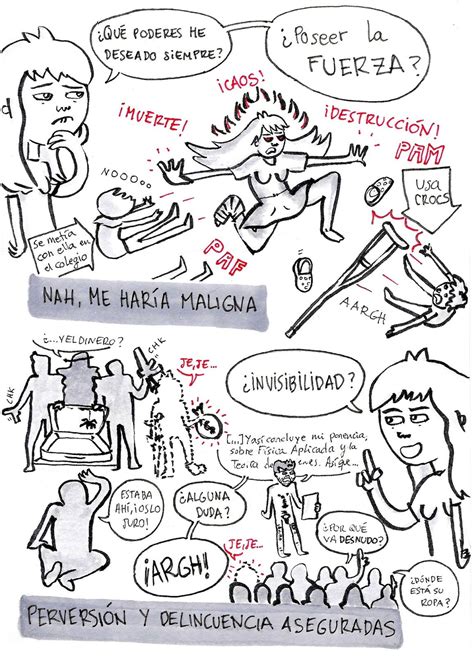 ¿QUÉ PODERES HE
DESEADO SIEMPRE?
¿POSEER LA
FUERZA?
¡CAOS!
¡MUERTE!
¡DESTRUCCIÓN!
PAM
NOOO...
USA
CROCS
SE METÍA
CON ELLA EN
EL COLEGIO
PAF
AARGH
NAH, ME HARÍA MALIGNA
¿...Y EL DINERO?
CHK
CHK
JE, JE...
¿INVISIBILIDAD?
[...] Y así concluye mi ponencia,
sobre Física Aplicada y la
Teoría de
ESTABA
AHÍ, ¡OS LO
JURO!
¿ALGUNA
DUDA?
¡ARGH!
JE, JE...
¿POR QUÉ
VA DESNUDO?
¿DÓNDE
ESTÁ SU
ROPA?
PERVERSIÓN Y DELINCUENCIA ASEGURADAS